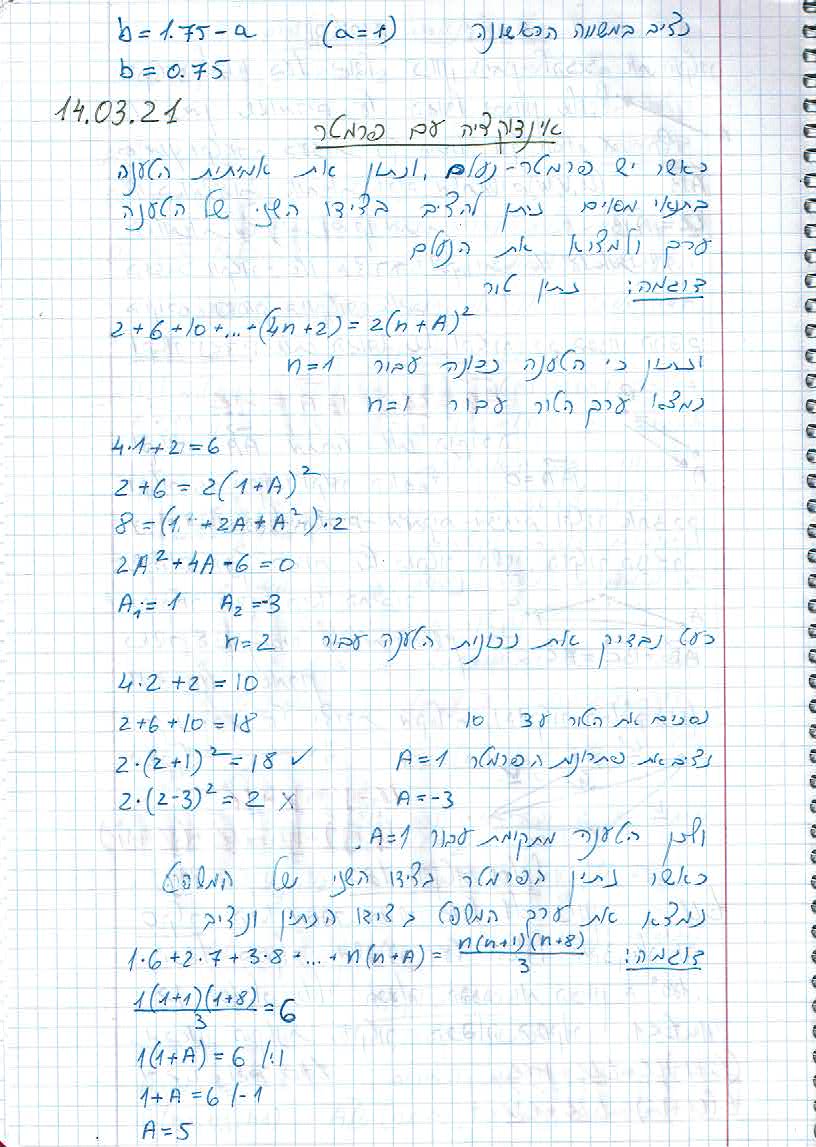 נציב במשווה הראשונה (a=1) b=1.75-a
b=0.75
14.03.21
אינדוקציה עם פרמטר
כאשר יש פרמטר-נעלם, ונתון את אמיתית הטענה
בתנאי מסוים ניתן להציב בצידו השני של הטענה
ערך ולמצוא את הנעלם
דוגמה: נתון טור
2+6+10+...+(4n+2)=2(n+A)²
ונתון כי הטענה נכונה עבור n=1
נמצא ערך הטור עבור n=1
4·1+2=6
2+6=2(1+A)²
8=(1+2A+A²)·2
2A²+4A-6=0
A₁=1 A₂=-3
כעט נבדוק את נכונות הטענה עבור n=2
4·2+2=10
2+6+10=18 נסכים את הטור עד 10
2·(2+1)²=18 ✓ נציב את פתרונות הפרמטר A=1
2·(2-3)²=2 x A=-3
ולכן הטענה מתקימת עבור A=1.
כאשר נתון הפרמטר בצידו השני של המשפט
נמצא את ערך המשפט בצידו הנתון ונציב
דוגמה: 1·6+2·7+3·8+...+n(n+A)=n(n+1)(n+8)/3
1(1+1)(1+8)/3=6
1(1+A)=6 /:1
1+A=6 /-1
A=5